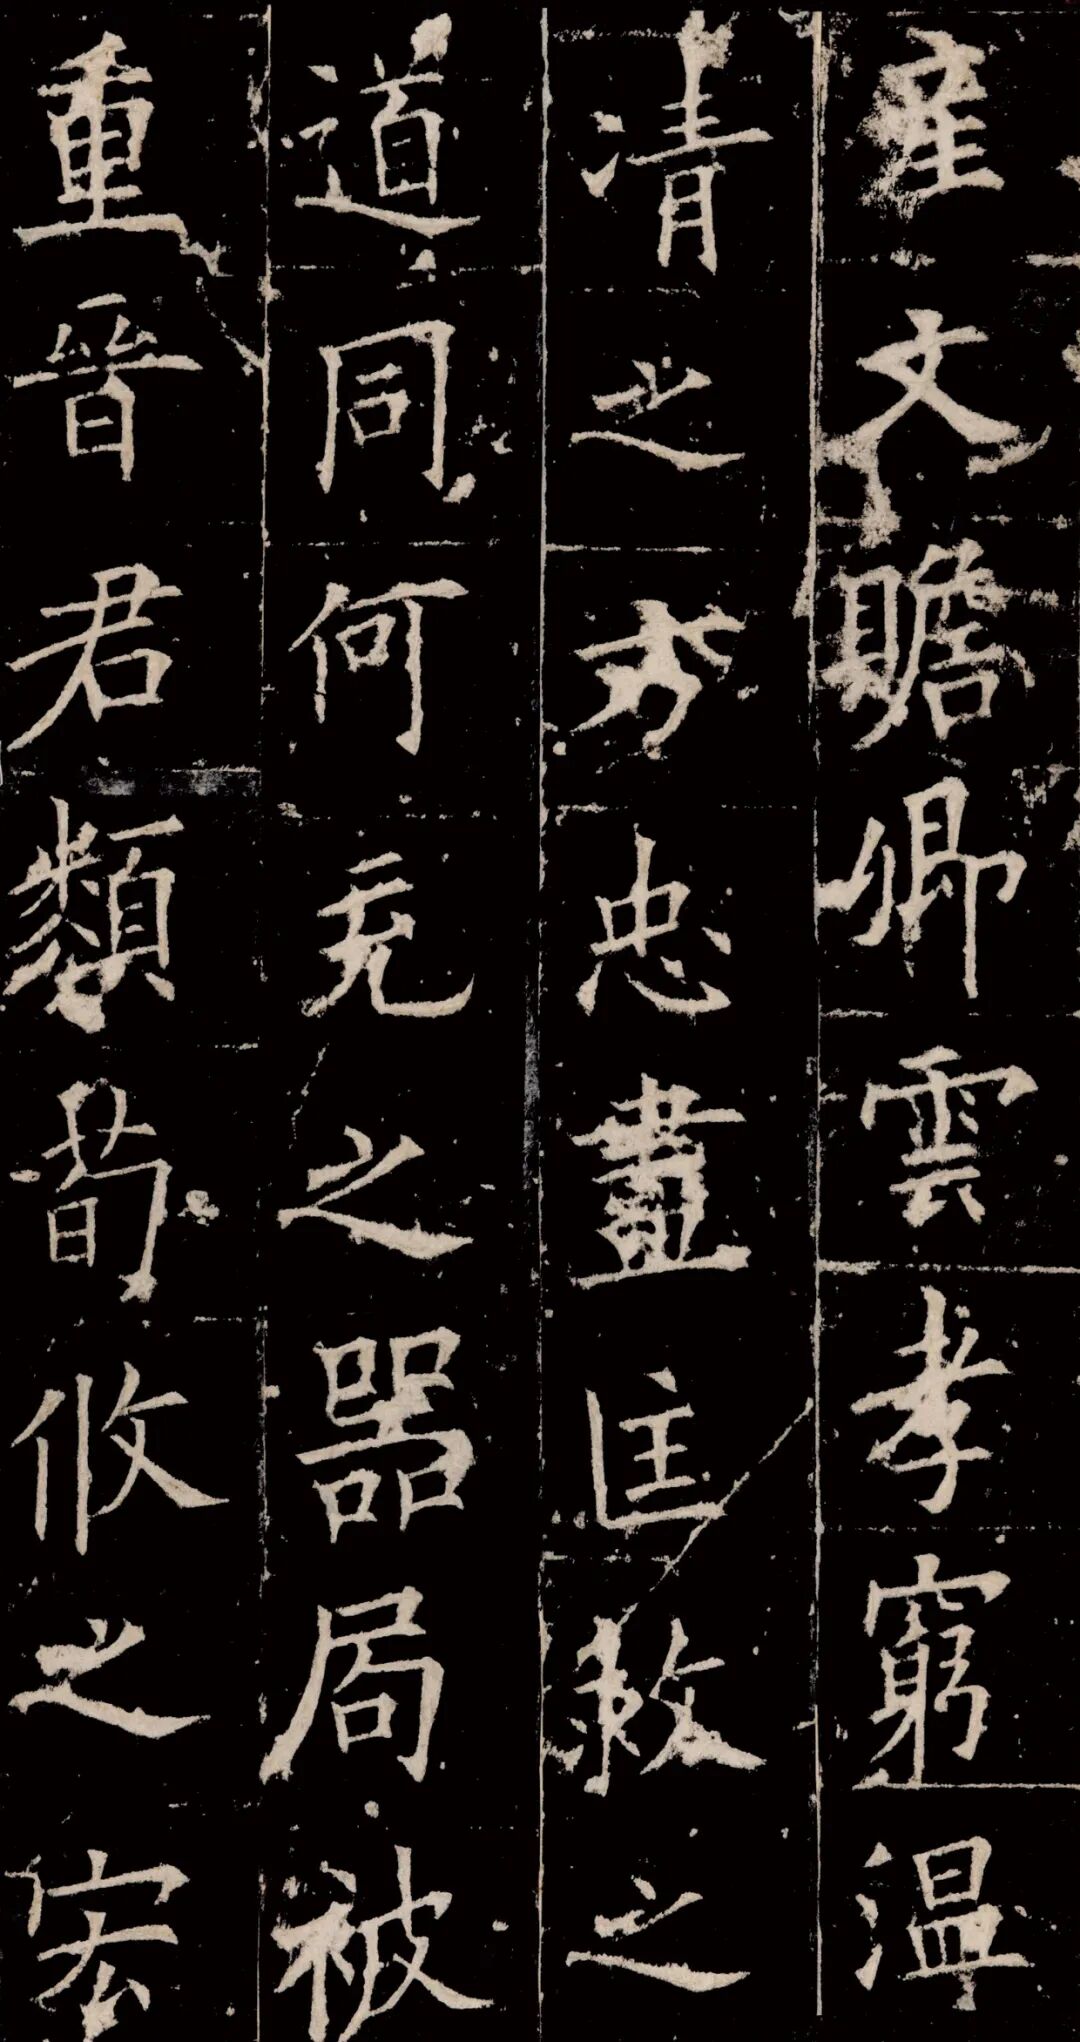 產文贍卿雲孝窮温
清之方忠盡匡救之
道同何充之器局被
重晉君類荀攸之宏